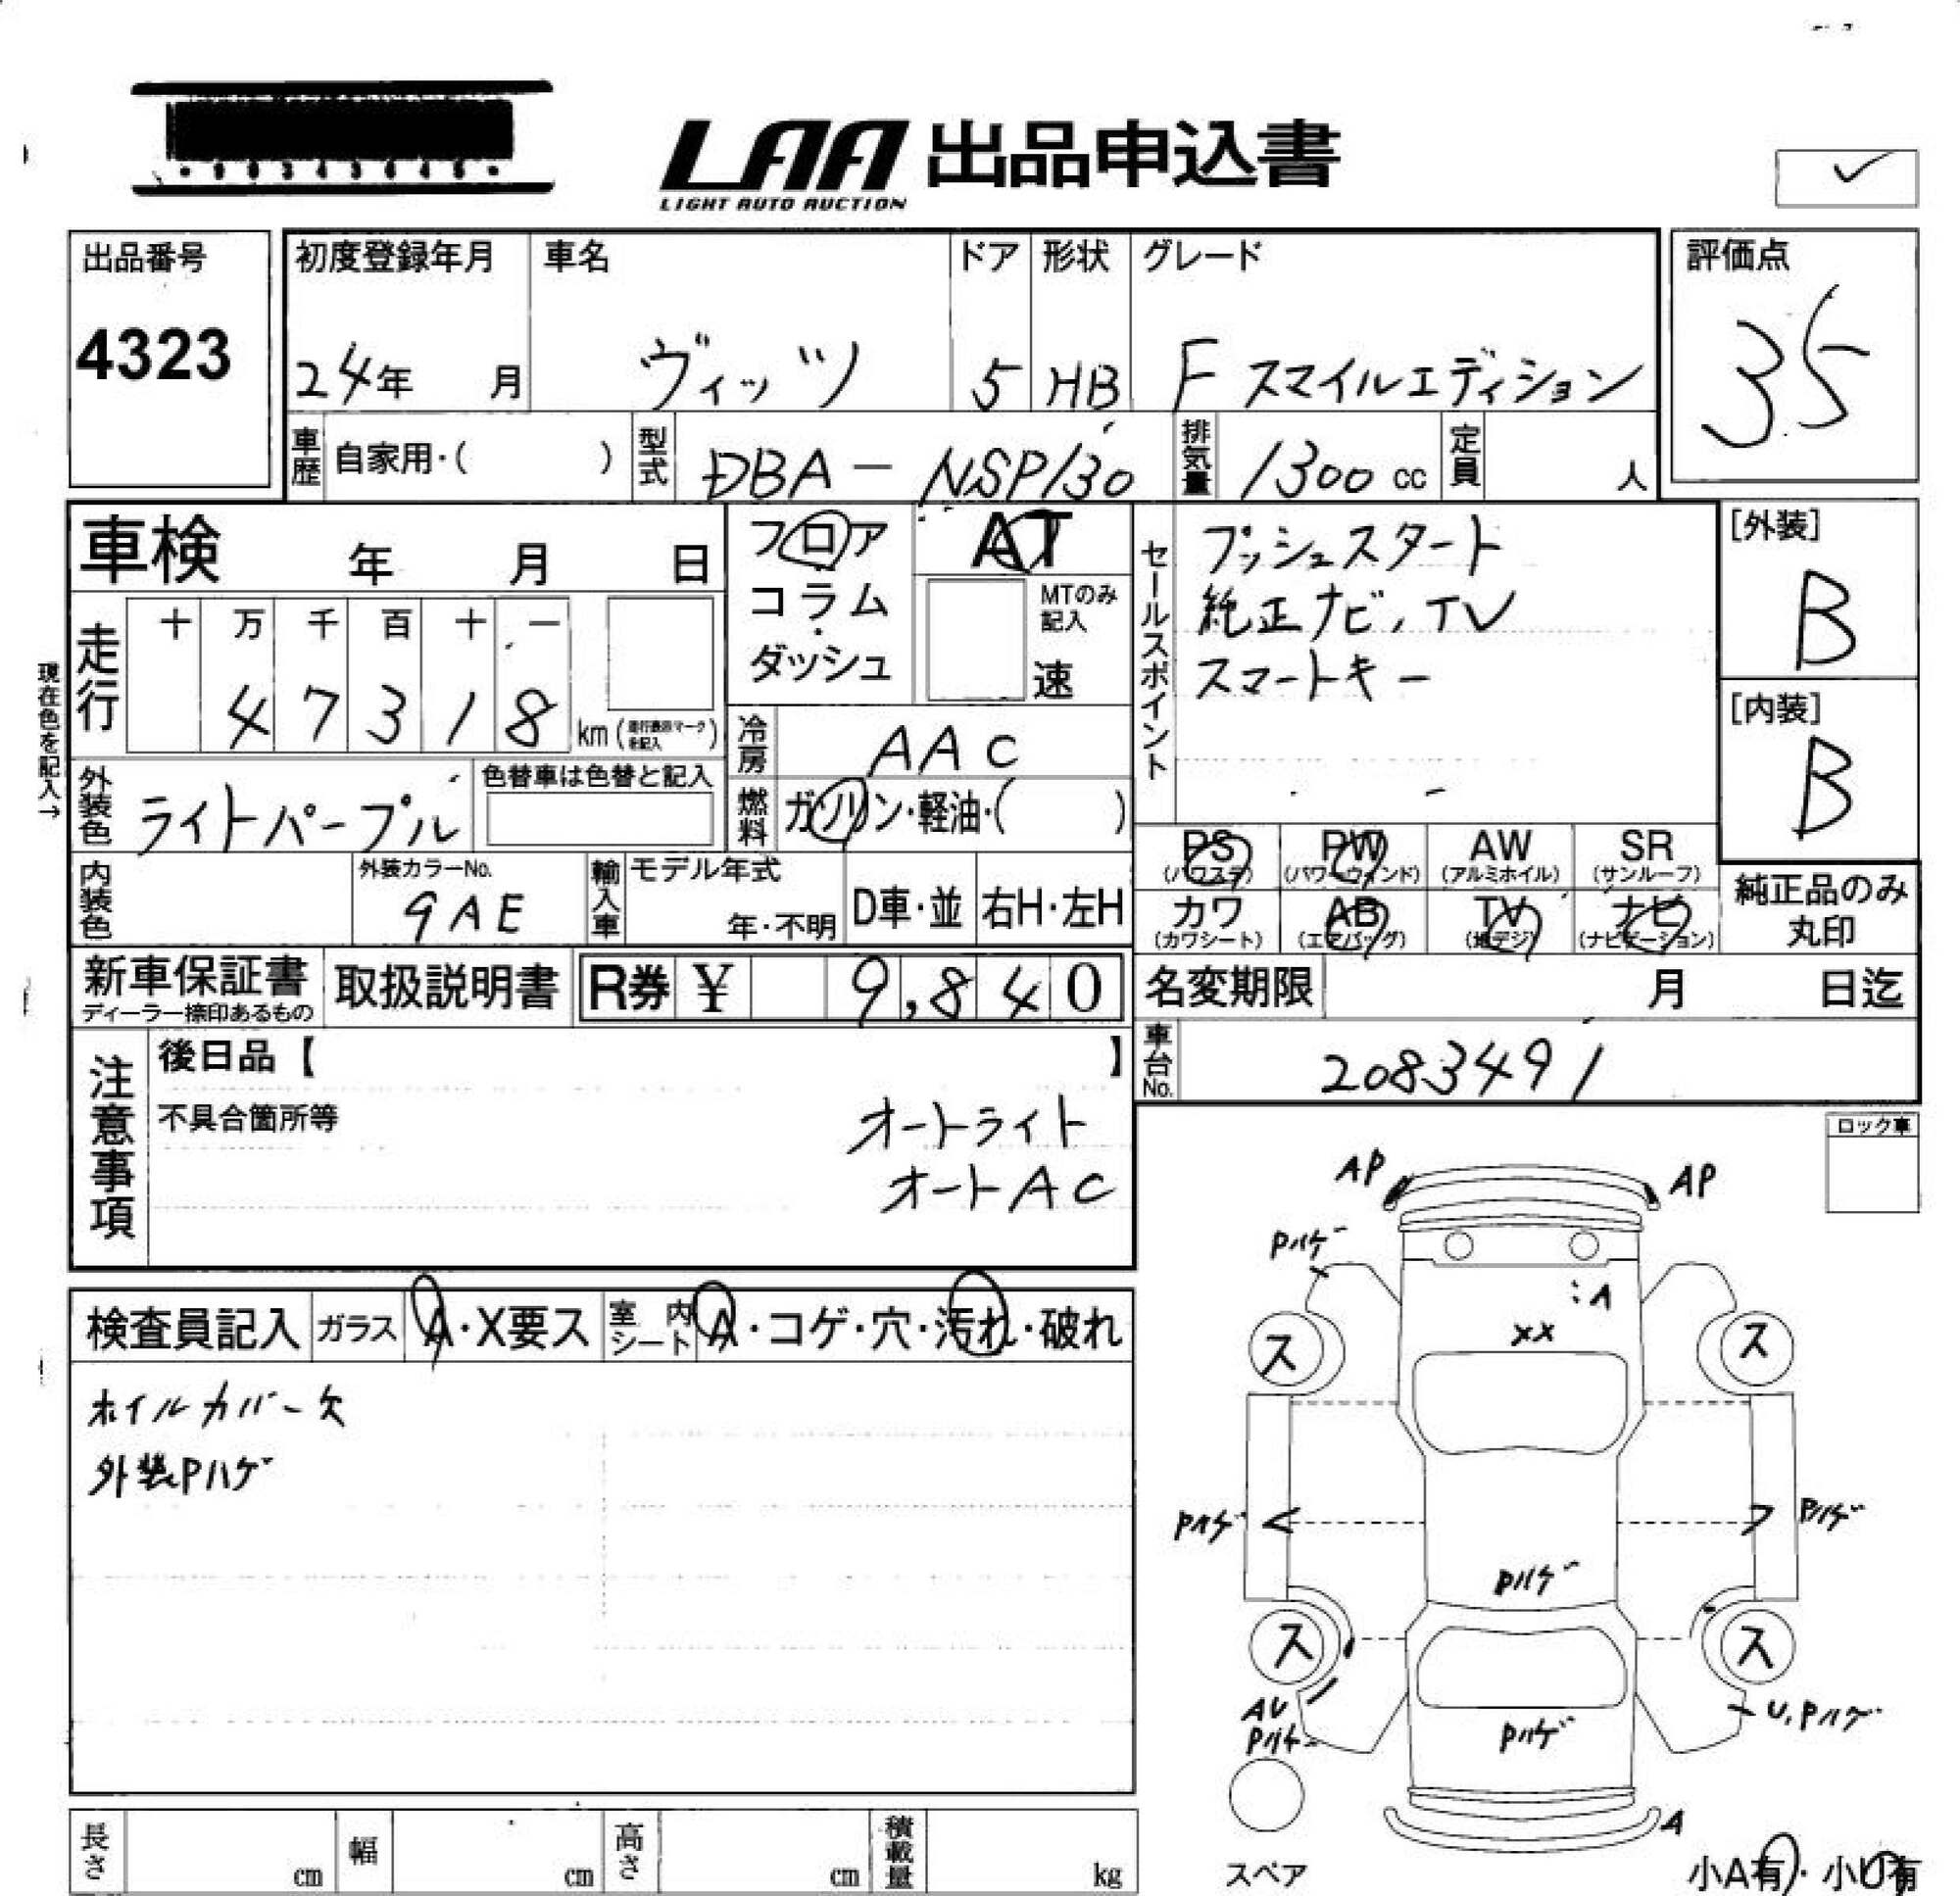 LAA 出品申込書
LIGHT AUTO AUCTION
出品番号
4323
初度登録年月 車名 ドア 形状 グレード
24年 月 ヴィッツ 5 HB F スマイルエディション
評価点
35
車歴 自家用・( ) 型式 DBA-NSP130 排気量 1300 cc 定員 人
車検 年 月 日
フロア
コラム
・
ダッシュ
AT
MTのみ
記入
速
セールスポイント
プッシュスタート
純正ナビ,TV
スマートキー
[外装]
B
[内装]
B
現在色を記入→
走行 十 万 千 百 十 一
4 7 3 1 8 km(走行表示マークを記入)
冷房 AAC
燃料 ガソリン・軽油・( )
外装色 ライトパープル 色替車は色替と記入
内装色 外装カラーNo. 9AE 輸入車 モデル年式 年・不明 D車・並 右H・左H
PS (パワステ) PW (パワーウィンド) AW (アルミホイル) SR (サンルーフ)
カワ (カワシート) AB (エアバッグ) TV (地デジ) ナビ (ナビゲーション)
純正品のみ
丸印
新車保証書
ディーラー捺印あるもの
取扱説明書 R券 ¥ 9,840
名変期限 月 日迄
車台No. 2083491
注意事項
後日品【 】
不具合箇所等
オートライト
オートAC
ロック車
検査員記入 ガラス A・X要ス 室内シート A・コゲ・穴・汚れ・破れ
ホイルカバー欠
外装Pハゲ
AP AP
Pハゲ
:A
××
ス ス
Pハゲ Pハゲ
Pハゲ
ス ス
AU
Pハゲ
U,Pハゲ
Pハゲ
A
スペア
小A有・小U有
長さ cm 幅 cm 高さ cm 積載量 kg